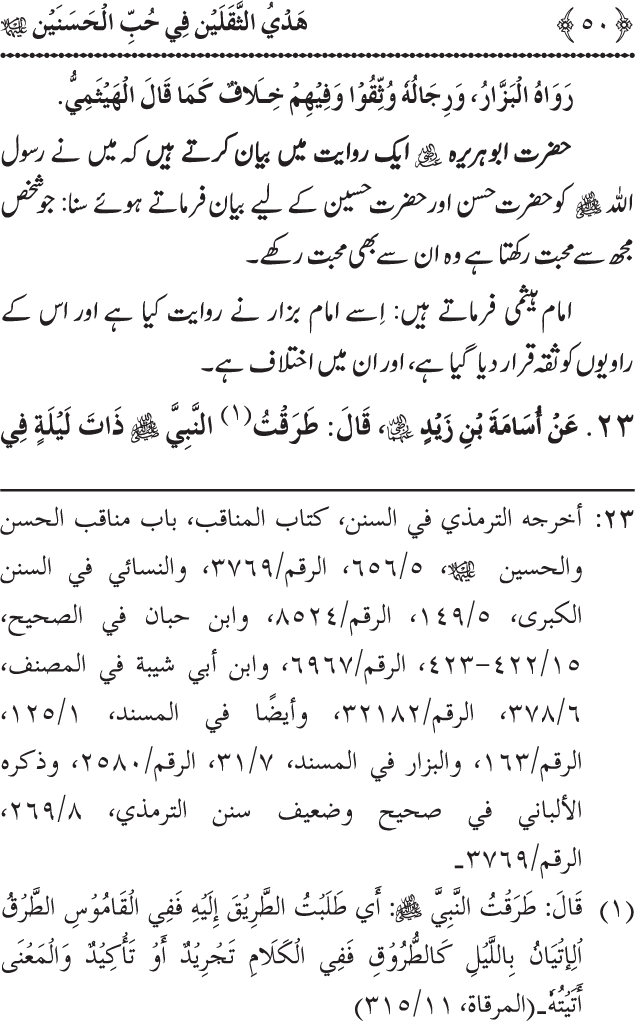 ﴿٥٠﴾ هَدْيُ الثَّقَلَيْن فِي حُبِّ الْحَسَنَيْن عليهما السلام
رَوَاهُ الْبَزَّارُ، وَرِجَالُهُ وُثِّقُوْا وَفِيْهِمْ خِلَافٌ كَمَا قَالَ الْهَيْثَمِيُّ.
حضرت ابو ہریرہ رضی اللہ عنہ ایک روایت میں بیان کرتے ہیں کہ میں نے رسول
اللہ ﷺ کو حضرت حسن اور حضرت حسین کے لیے بیان فرماتے ہوئے سنا: جو شخص
مجھ سے محبت رکھتا ہے وہ ان سے بھی محبت رکھے۔
امام ہیثمی فرماتے ہیں: اِسے امام بزار نے روایت کیا ہے اور اس کے
راویوں کو ثقہ قرار دیا گیا ہے، اور ان میں اختلاف ہے۔
٢٣. عَنْ أُسَامَةَ بْنِ زَيْدٍ رضی اللہ عنہما، قَالَ: طَرَقْتُ(١) النَّبِيَّ ﷺ ذَاتَ لَيْلَةٍ فِي
٢٣: أخرجه الترمذي في السنن، كتاب المناقب، باب مناقب الحسن
والحسين عليهما السلام، ٥/٦٥٦، الرقم/٣٧٦٩، والنسائي في السنن
الكبرى، ٥/١٤٩، الرقم/٨٥٢٤، وابن حبان في الصحيح،
١٥/٤٢٢-٤٢٣، الرقم/٦٩٦٧، وابن أبي شيبة في المصنف،
٦/٣٧٨، الرقم/٣٢١٨٢، وأيضًا في المسند، ١/١٢٥،
الرقم/١٦٣، والبزار في المسند، ٧/٣١، الرقم/٢٥٨٠، وذكره
الألباني في صحيح وضعيف سنن الترمذي، ٨/٢٦٩،
الرقم/٣٧٦٩۔
(١) قَالَ: طَرَقْتُ النَّبِيَّ ﷺ: أَي طَلَبْتُ الطَّرِيْقَ إِلَيْهِ فَفِي الْقَامُوْسِ الطَّرْقُ
الْإِتْيَانُ بِاللَّيْلِ كَالطُّرُوْقِ فَفِي الْكَلَامِ تَجْرِيْدٌ أَوْ تَأْكِيْدٌ وَالْمَعْنَى
أَتَيْتُهُ۔(المرقاة، ١١/٣١٥)